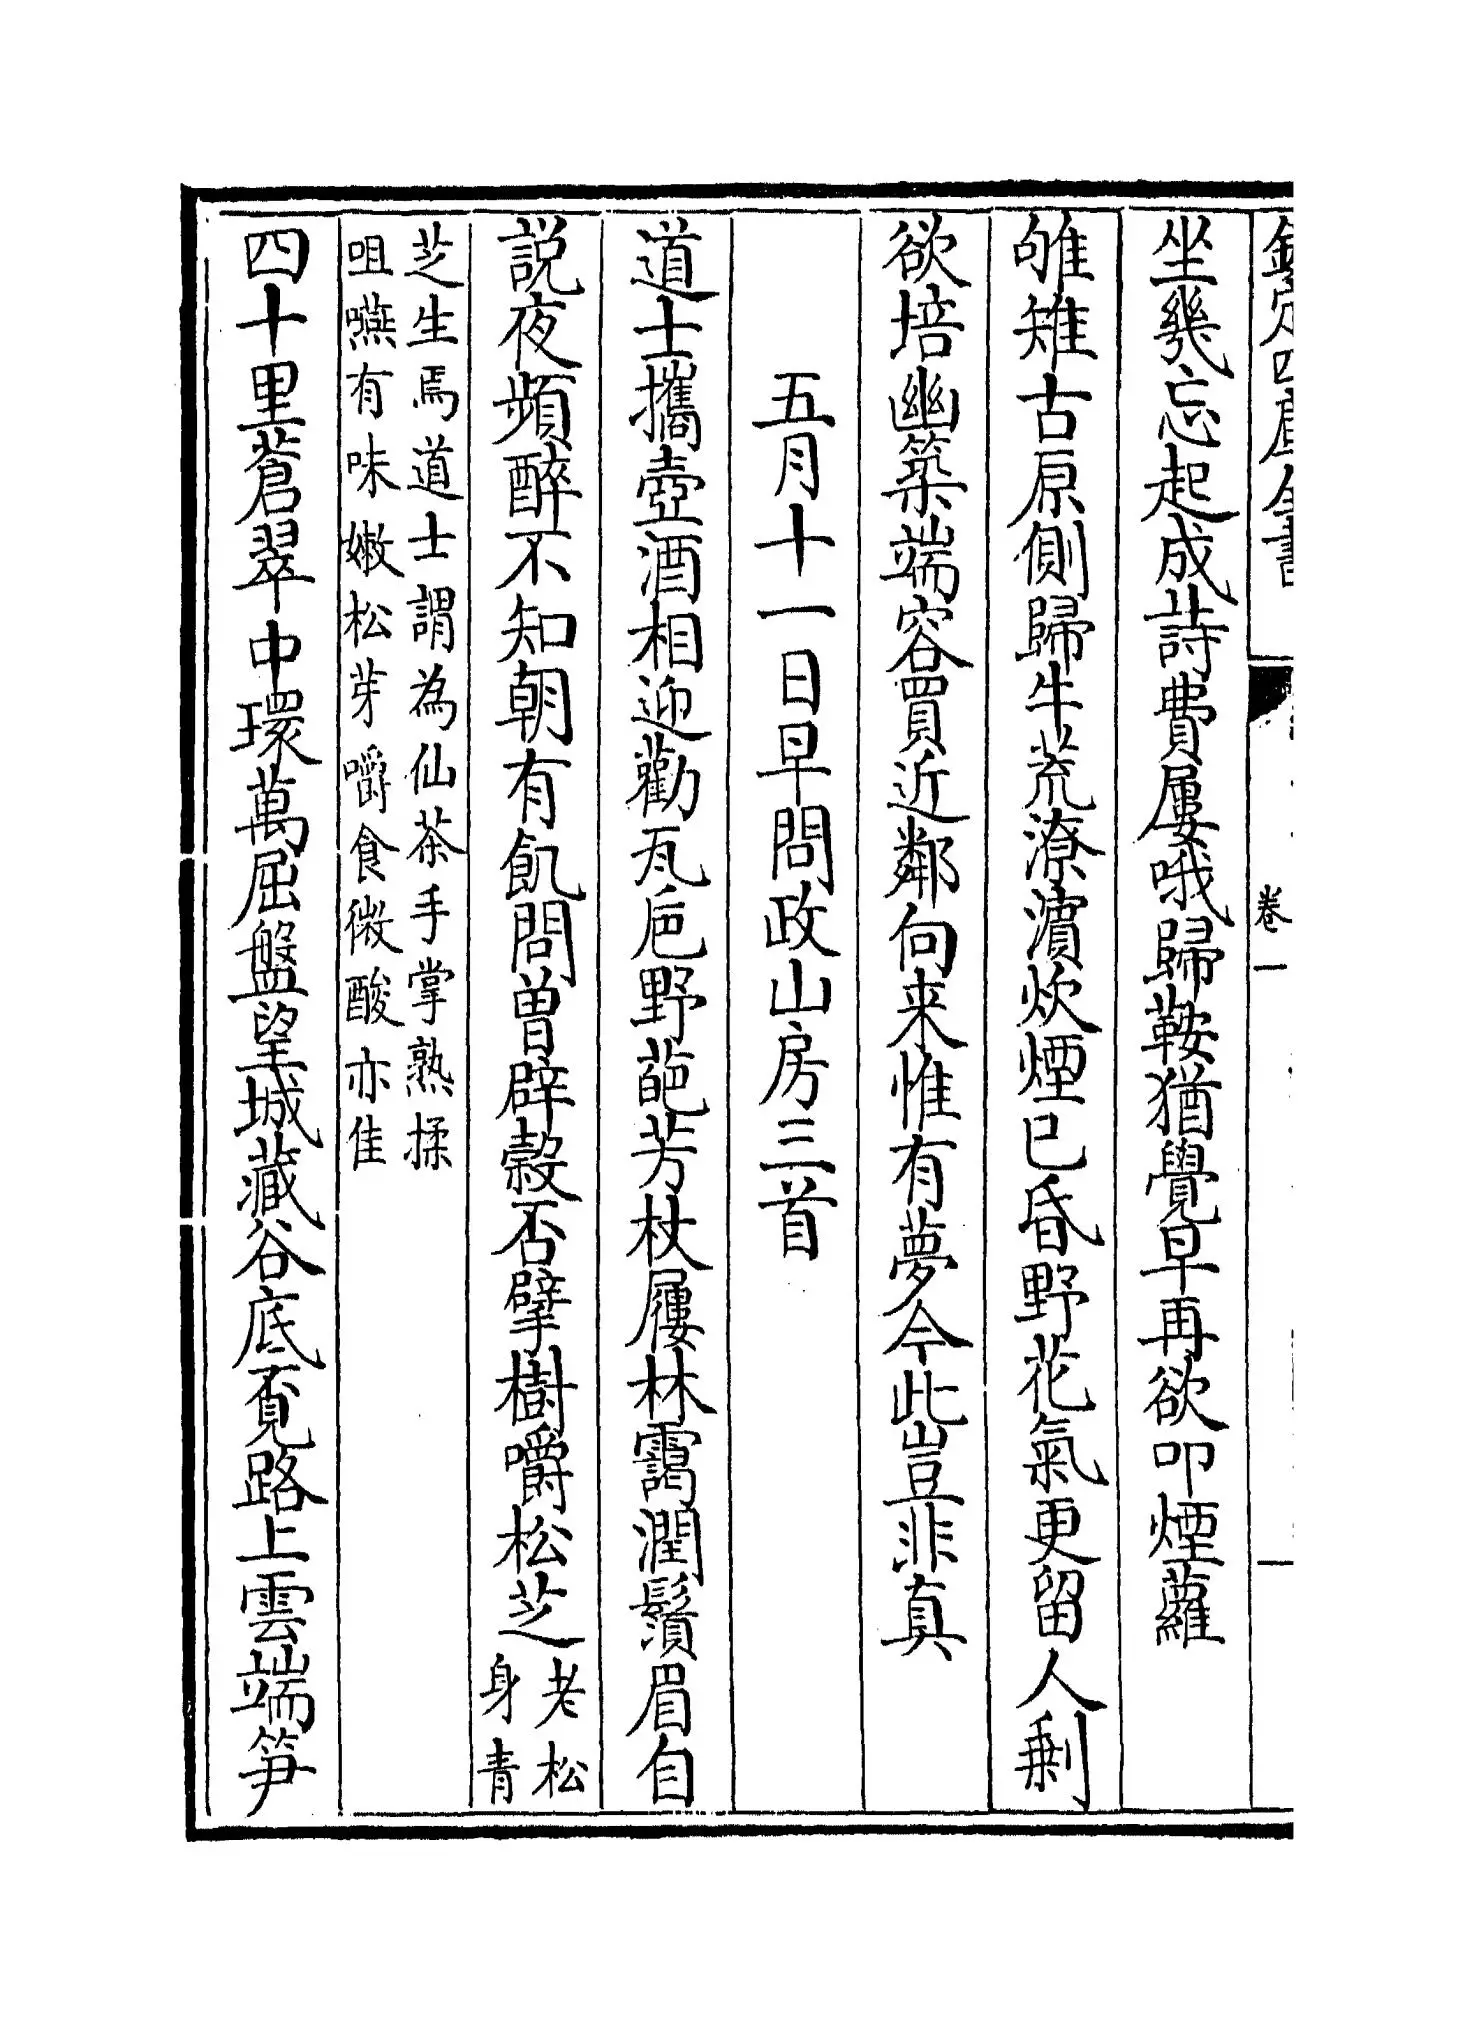 欽定四庫全書
卷一
坐幾忘起成詩費屢哦歸鞍猶覺早再欲叩煙蘿
雊雉古原側歸牛荒潦濆炊煙已昏野花氣更留人剩
欲培幽築端容買近鄰向来惟有夢今此豈非真
五月十一日早問政山房三首
道士攜壺酒相迎勸瓦巵野葩芳杖屨林靄潤鬚眉自
説夜頻醉不知朝有飢問曽辟穀否擘樹嚼松芝老松身青
芝生焉道士謂為仙茶手掌熟揉
咀嚥有味嫩松芽嚼食微酸亦佳
四十里蒼翠中環萬屈盤望城藏谷底覔路上雲端笋